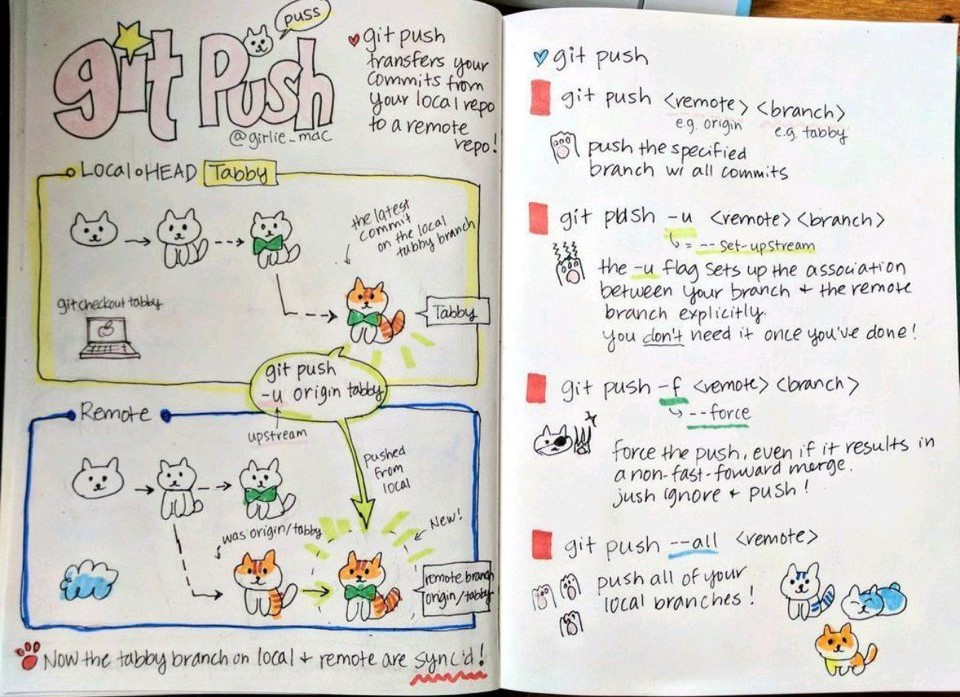 puss
git Push
@girlie_mac
git push
transfers your
commits from
your local repo
to a remote
repo!
Local HEAD Tabby
the latest
commit
on the local
tabby branch
git checkout tabby
Tabby
git push
-u origin tabby
upstream
Remote
pushed
from
local
was origin/tabby
New!
remote branch
origin/tabby
Now the tabby branch on local + remote are sync'd!
git push
git push <remote> <branch>
e.g. origin e.g. tabby
push the specified
branch w/ all commits
git push -u <remote> <branch>
= --set-upstream
the -u flag sets up the association
between your branch + the remote
branch explicitly.
you don't need it once you've done!
git push -f <remote> <branch>
--force
Force the push, even if it results in
a non-fast-foward merge.
jush ignore + push!
git push --all <remote>
push all of your
local branches!